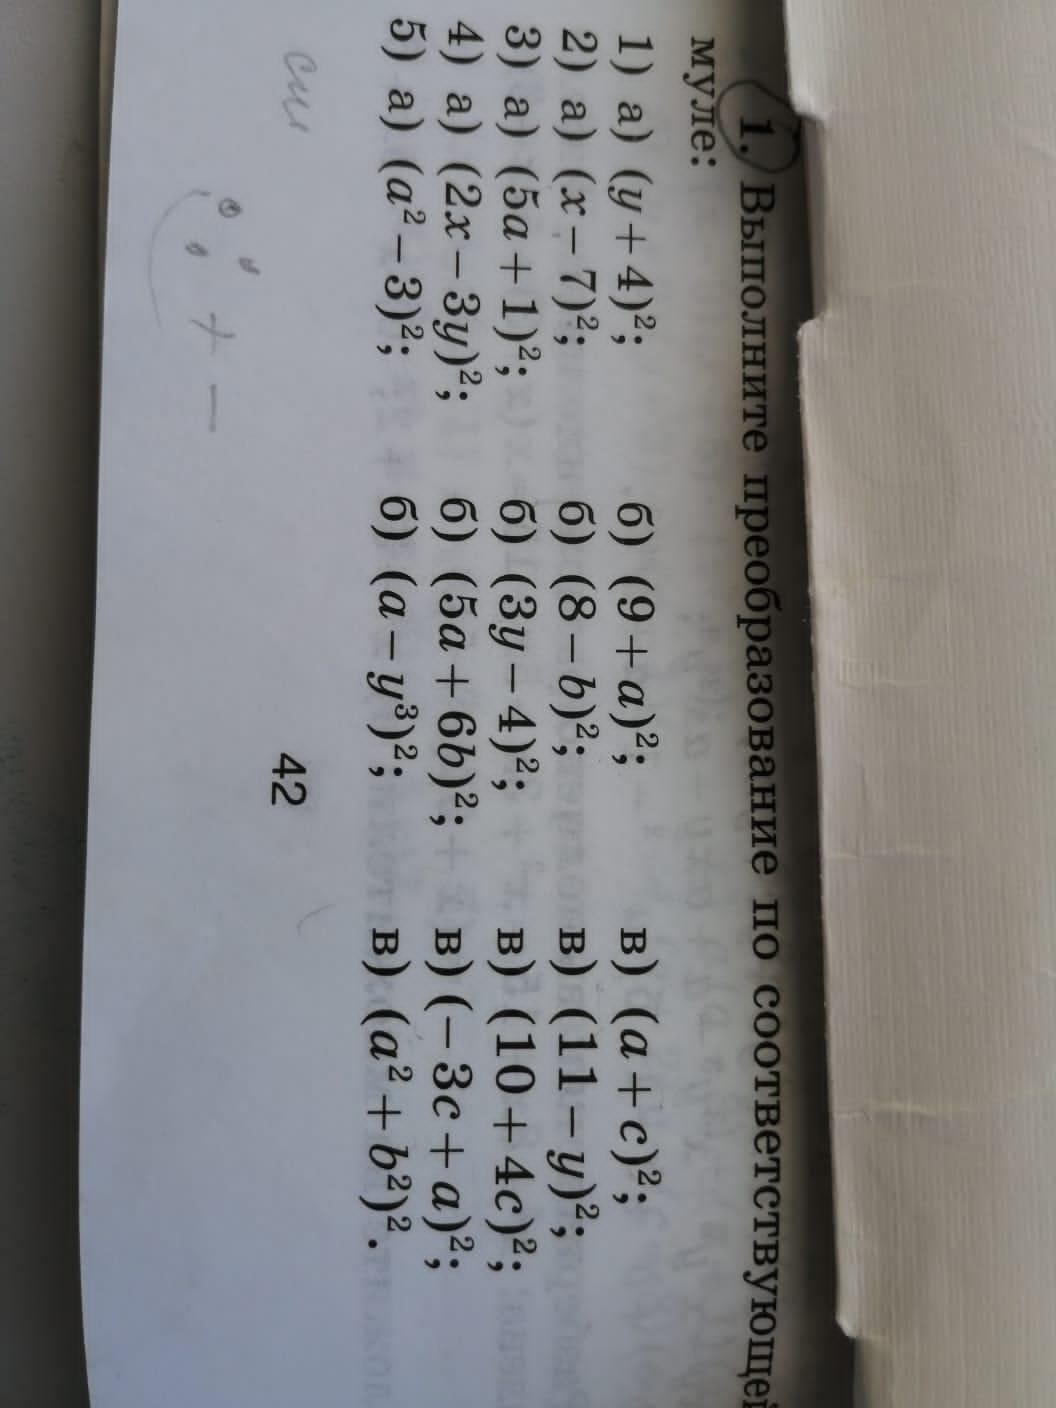 1. Выполните преобразование по соответствующей
муле:
1) а) (y + 4)²; б) (9 + a)²; в) (a + c)²;
2) а) (x − 7)²; б) (8 − b)²; в) (11 − y)²;
3) а) (5a + 1)²; б) (3y − 4)²; в) (10 + 4c)²;
4) а) (2x − 3y)²; б) (5a + 6b)²; в) (−3c + a)²;
5) а) (a² − 3)²; б) (a − y³)²; в) (a² + b²)².
42
+ −